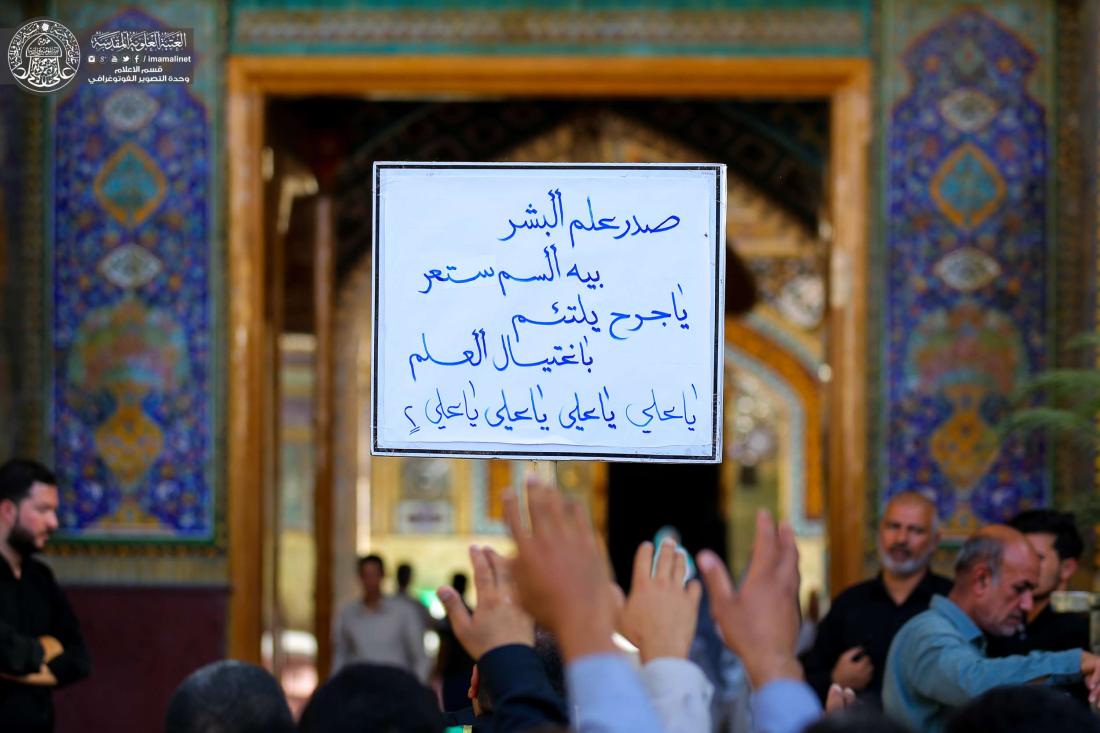 العتبة العلوية المقدسة
/ imamalinet
قسم الاعلام
وحدة التصوير الفوتوغرافي
صدر علم ألبشر
بيه ألسم ستعر
ياجرح يلتئم
باغتيال ألعلم
ياعلي ياعلي ياعلي ياعلي ٢